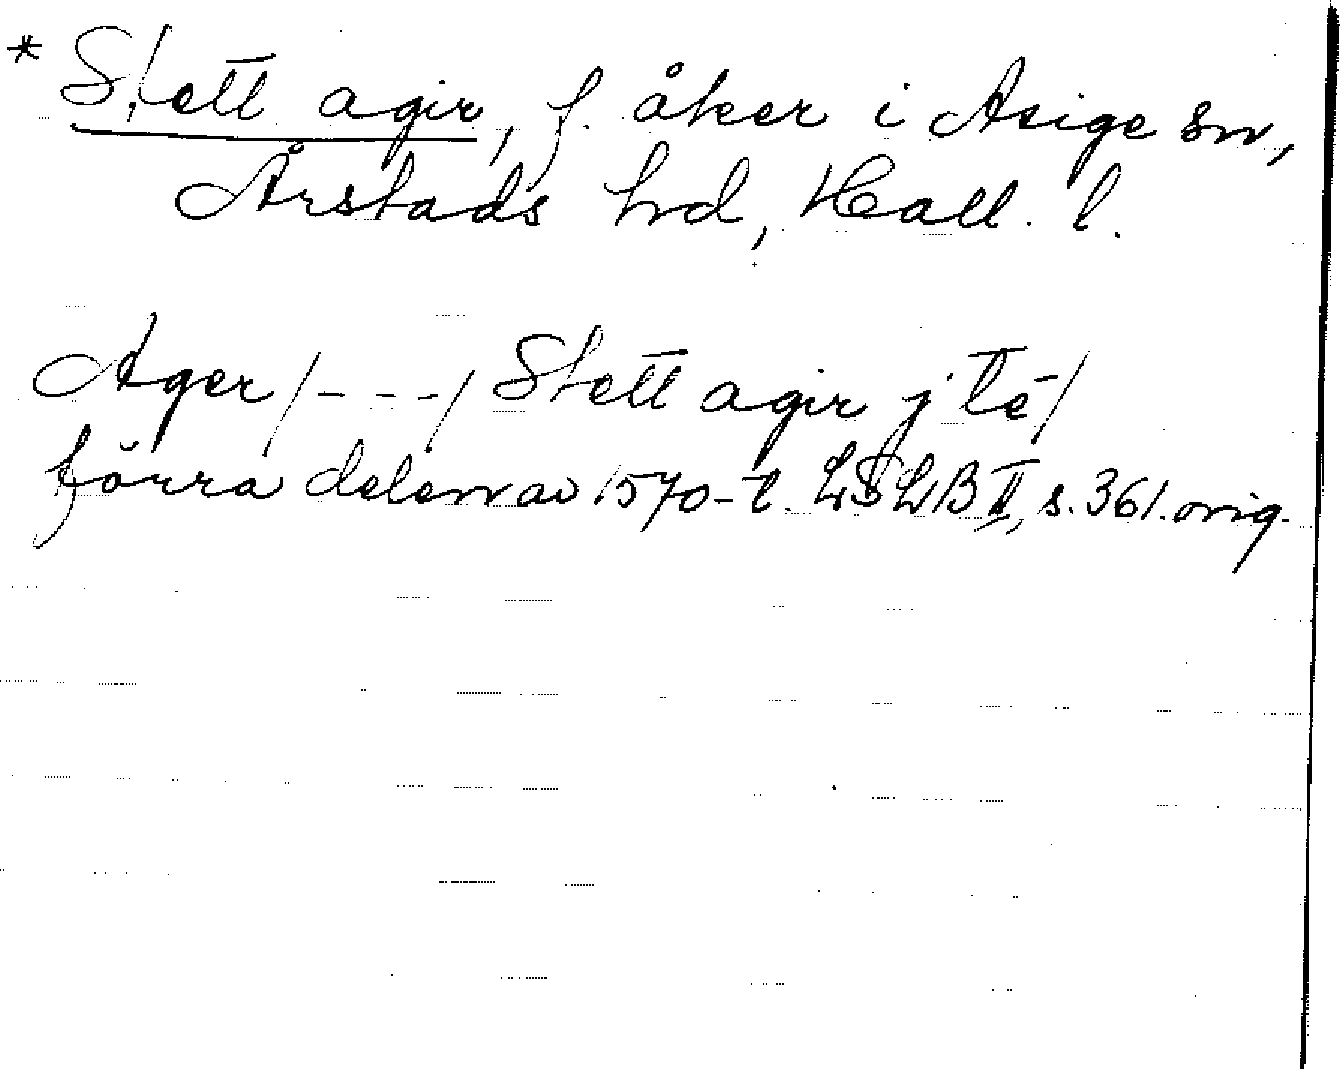 * Stett agir, f. åker i Asige sn,
Årstads hd, Hall. l.
Ager /- - -/ Stett agir j Tē /
förra delen av 1570-t. LSLB II, s. 361. orig.